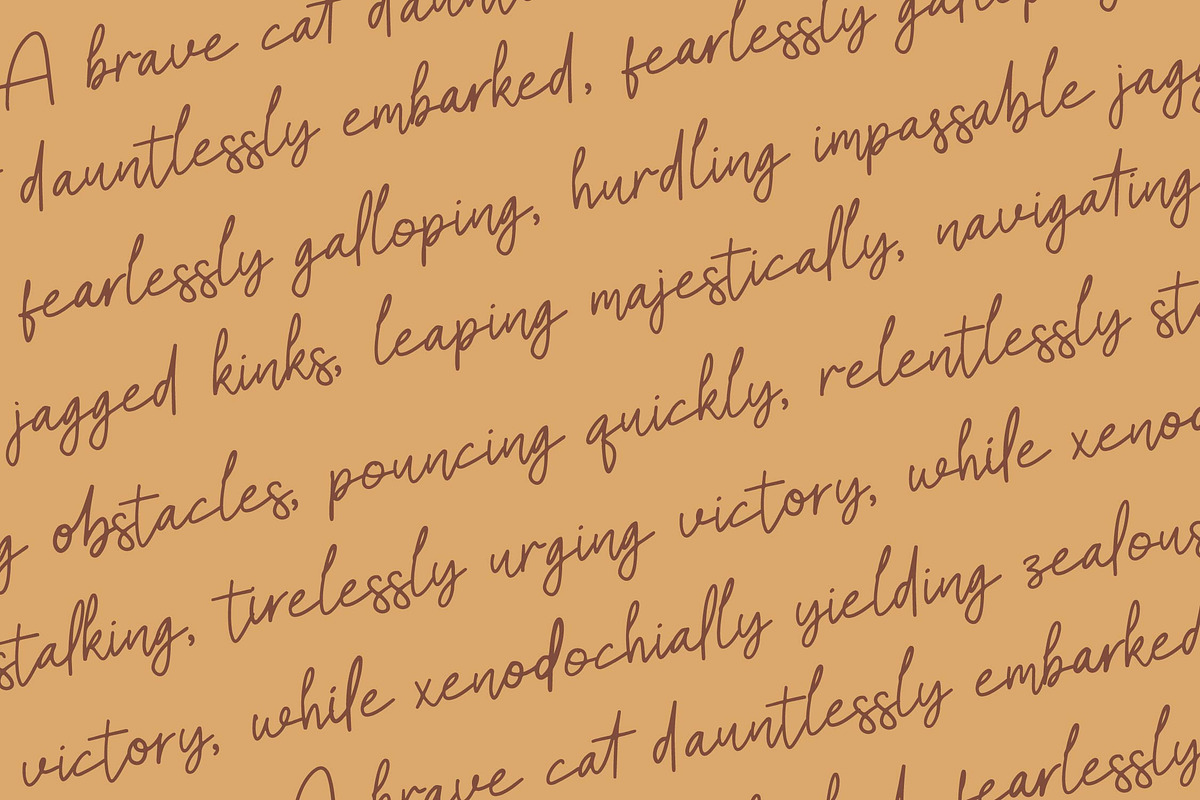 A brave cat
dauntlessly embarked, fearlessly
fearlessly galloping, hurdling impassable
jagged kinks, leaping majestically, navigating
obstacles, pouncing quickly, relentlessly
stalking, tirelessly urging victory, while
victory, while xenodochially yielding
A brave cat dauntlessly embarked
fearlessly